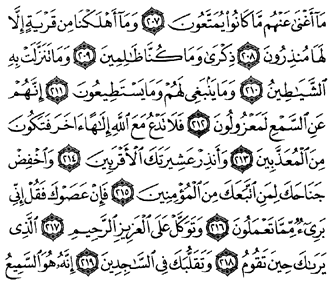 مَآ أَغْنَىٰ عَنْهُم مَّا كَانُوا۟ يُمَتَّعُونَ ٢٠٧ وَمَآ أَهْلَكْنَا مِن قَرْيَةٍ إِلَّا
لَهَا مُنذِرُونَ ٢٠٨ ذِكْرَىٰ وَمَا كُنَّا ظَـٰلِمِينَ ٢٠٩ وَمَا تَنَزَّلَتْ بِهِ
ٱلشَّيَـٰطِينُ ٢١٠ وَمَا يَنۢبَغِى لَهُمْ وَمَا يَسْتَطِيعُونَ ٢١١ إِنَّهُمْ
عَنِ ٱلسَّمْعِ لَمَعْزُولُونَ ٢١٢ فَلَا تَدْعُ مَعَ ٱللَّهِ إِلَـٰهًا ءَاخَرَ فَتَكُونَ
مِنَ ٱلْمُعَذَّبِينَ ٢١٣ وَأَنذِرْ عَشِيرَتَكَ ٱلْأَقْرَبِينَ ٢١٤ وَٱخْفِضْ
جَنَاحَكَ لِمَنِ ٱتَّبَعَكَ مِنَ ٱلْمُؤْمِنِينَ ٢١٥ فَإِنْ عَصَوْكَ فَقُلْ إِنِّى
بَرِىٓءٌ مِّمَّا تَعْمَلُونَ ٢١٦ وَتَوَكَّلْ عَلَى ٱلْعَزِيزِ ٱلرَّحِيمِ ٢١٧ ٱلَّذِى
يَرَىٰكَ حِينَ تَقُومُ ٢١٨ وَتَقَلُّبَكَ فِى ٱلسَّـٰجِدِينَ ٢١٩ إِنَّهُۥ هُوَ ٱلسَّمِيعُ